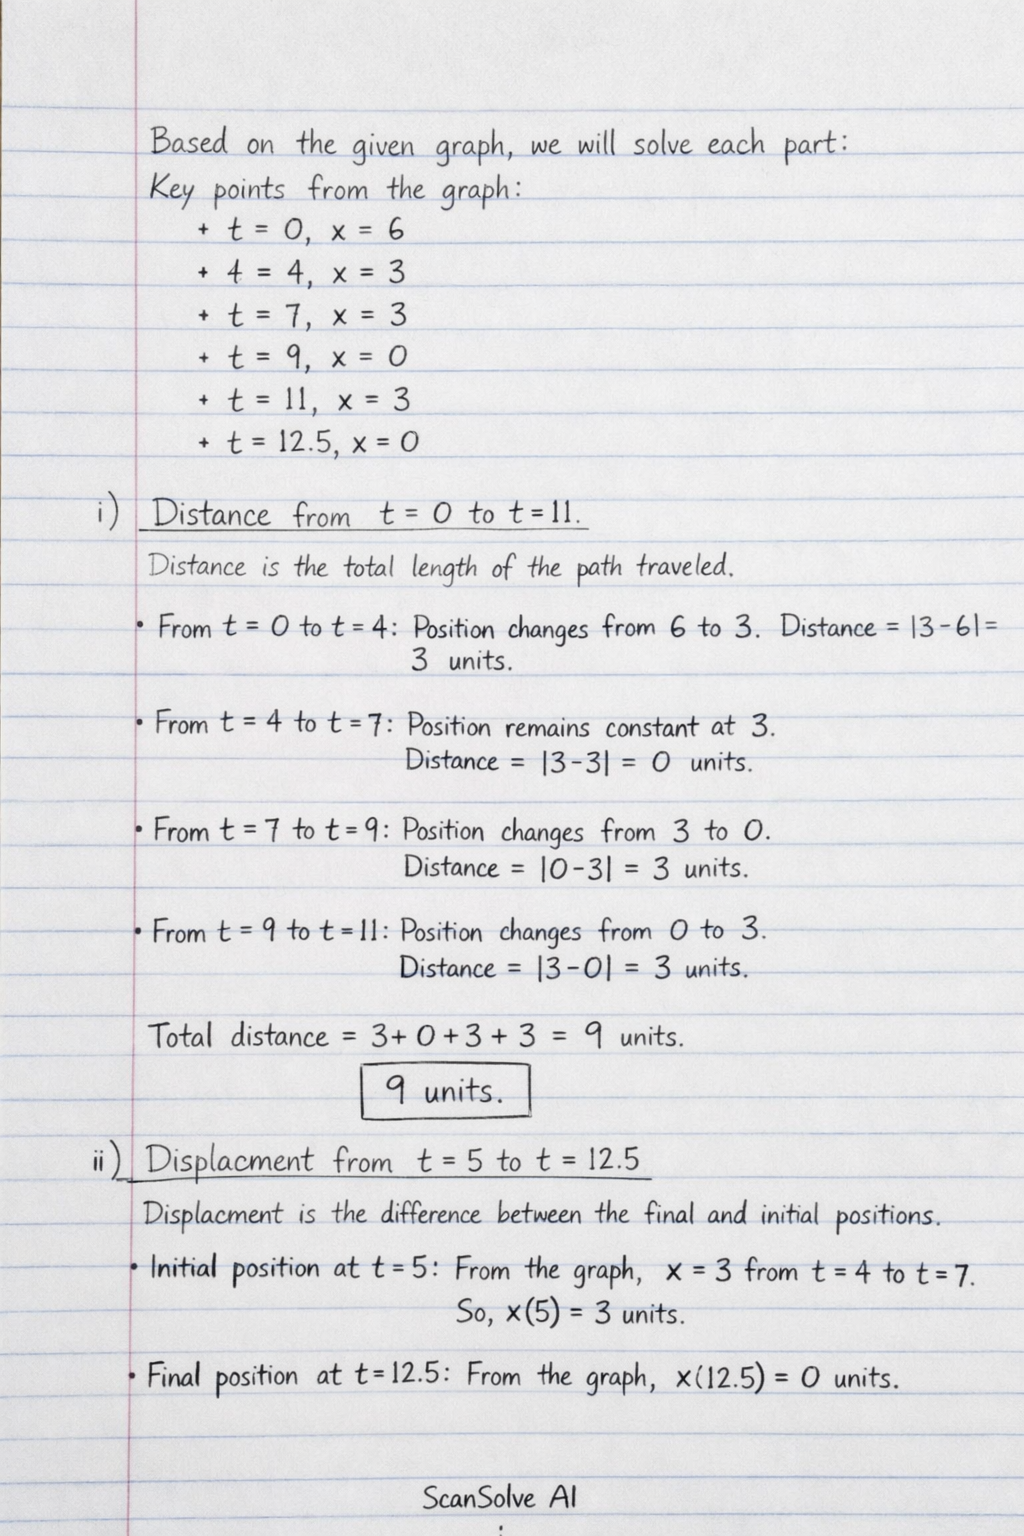 Based on the given graph, we will solve each part:
Key points from the graph:
+ t = 0, x = 6
+ 4 = 4, x = 3
+ t = 7, x = 3
+ t = 9, x = 0
+ t = 11, x = 3
+ t = 12.5, x = 0
i) Distance from t = 0 to t = 11.
Distance is the total length of the path traveled.
• From t = 0 to t = 4: Position changes from 6 to 3. Distance = |3-6| =
3 units.
• From t = 4 to t = 7: Position remains constant at 3.
Distance = |3-3| = 0 units.
• From t = 7 to t = 9: Position changes from 3 to 0.
Distance = |0-3| = 3 units.
• From t = 9 to t = 11: Position changes from 0 to 3.
Distance = |3-0| = 3 units.
Total distance = 3+ 0 + 3 + 3 = 9 units.
9 units.
ii) Displacment from t = 5 to t = 12.5
Displacment is the difference between the final and initial positions.
• Initial position at t = 5: From the graph, x = 3 from t = 4 to t = 7.
So, x(5) = 3 units.
• Final position at t = 12.5: From the graph, x(12.5) = 0 units.
ScanSolve AI